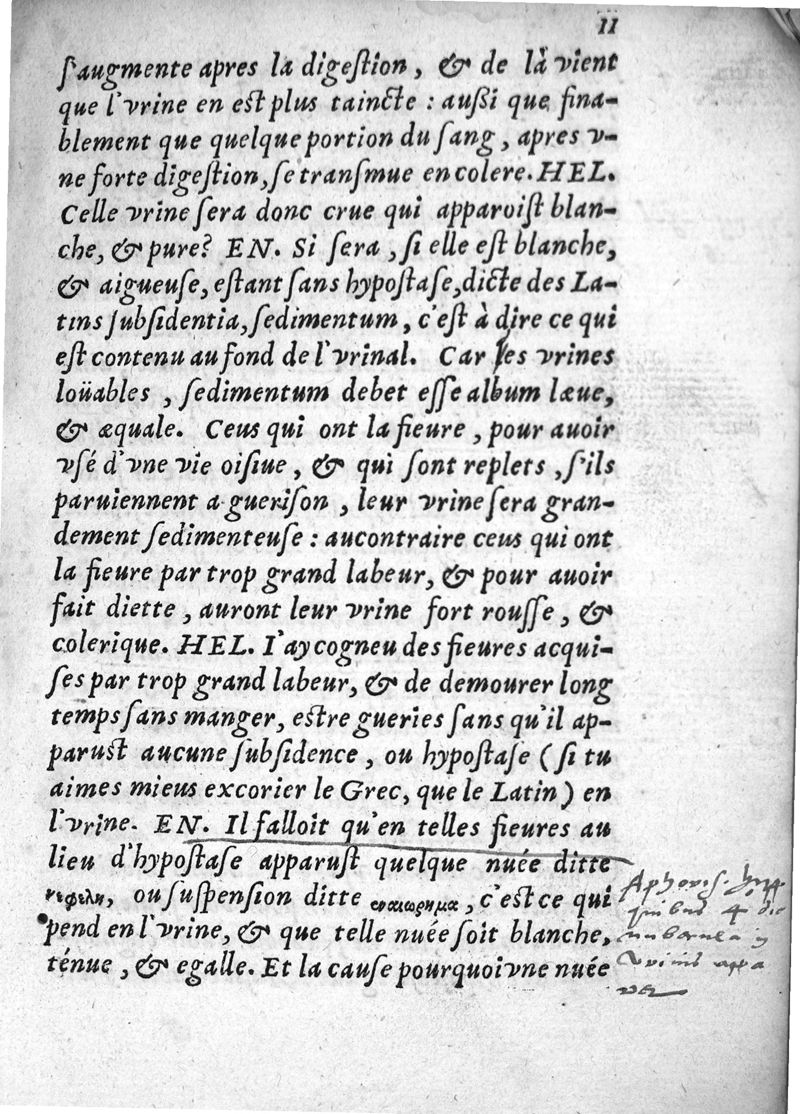 11
s'augmente apres la digestion, & de là vient
que l'vrine en est plus taincte : aussi que fina-
blement que quelque portion du sang, apres v-
ne forte digestion, se transmue en colere. HEL.
Celle vrine sera donc crue qui apparoist blan-
che, & pure? EN. Si sera, si elle est blanche,
& aigueuse, estant sans hypostase, dicte des La-
tins subsidentia, sedimentum, c'est à dire ce qui
est contenu au fond de l'vrinal. Car les vrines
loüables, sedimentum debet esse album læue,
& æquale. Ceus qui ont la fieure, pour auoir
vsé d'vne vie oisiue, & qui sont replets, s'ils
paruiennent a guerison, leur vrine sera gran-
dement sedimenteuse : aucontraire ceus qui ont
la fieure par trop grand labeur, & pour auoir
fait diette, auront leur vrine fort rousse, &
colerique. HEL. I'ay cogneu des fieures acqui-
ses par trop grand labeur, & de demourer long
temps sans manger, estre gueries sans qu'il ap-
parust aucune subsidence, ou hypostase (si tu
aimes mieus excorier le Grec, que le Latin) en
l'vrine. EN. Il falloit qu'en telles fieures au
lieu d'hypostase apparust quelque nuée ditte
νεφελη, ou suspension ditte εναιωρημα, c'est ce qui
pend en l'vrine, & que telle nuée soit blanche,
ténue, & egalle. Et la cause pourquoi vne nuée
Aphoris.
quibus 4 die
nubecula in
vrinis appa